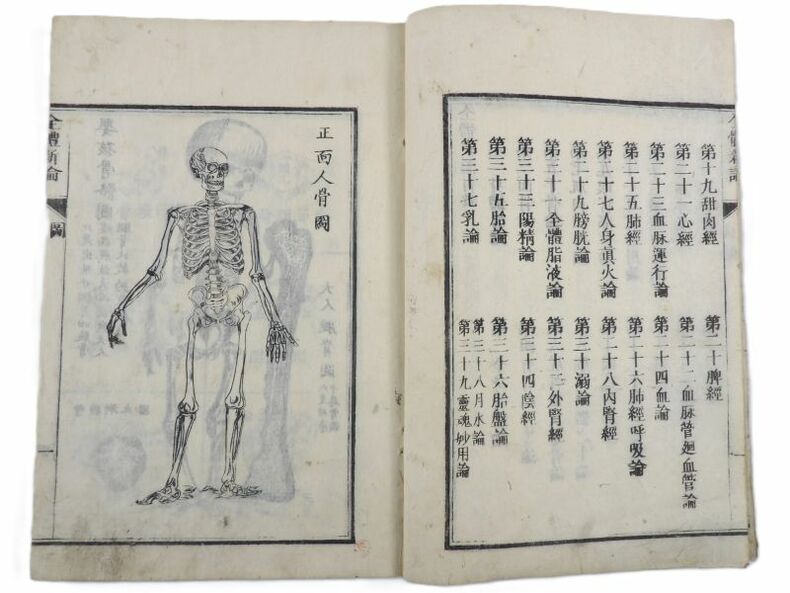 第十九甜肉經
第二十脾經
第二十一心經
第二十二血脉管廻血管論
第二十三血脉運行論
第二十四血論
第二十五肺經
第二十六肺經呼吸論
第二十七人身真火論
第二十八內腎經
第二十九膀胱論
第三十溺論
第三十一全體脂液論
第三十二外腎經
第三十三陽精論
第三十四陰經
第三十五胎論
第三十六胎盤論
第三十七乳論
第三十八月水論
第三十九靈魂妙用論
正面人骨圖
全體新論
圖